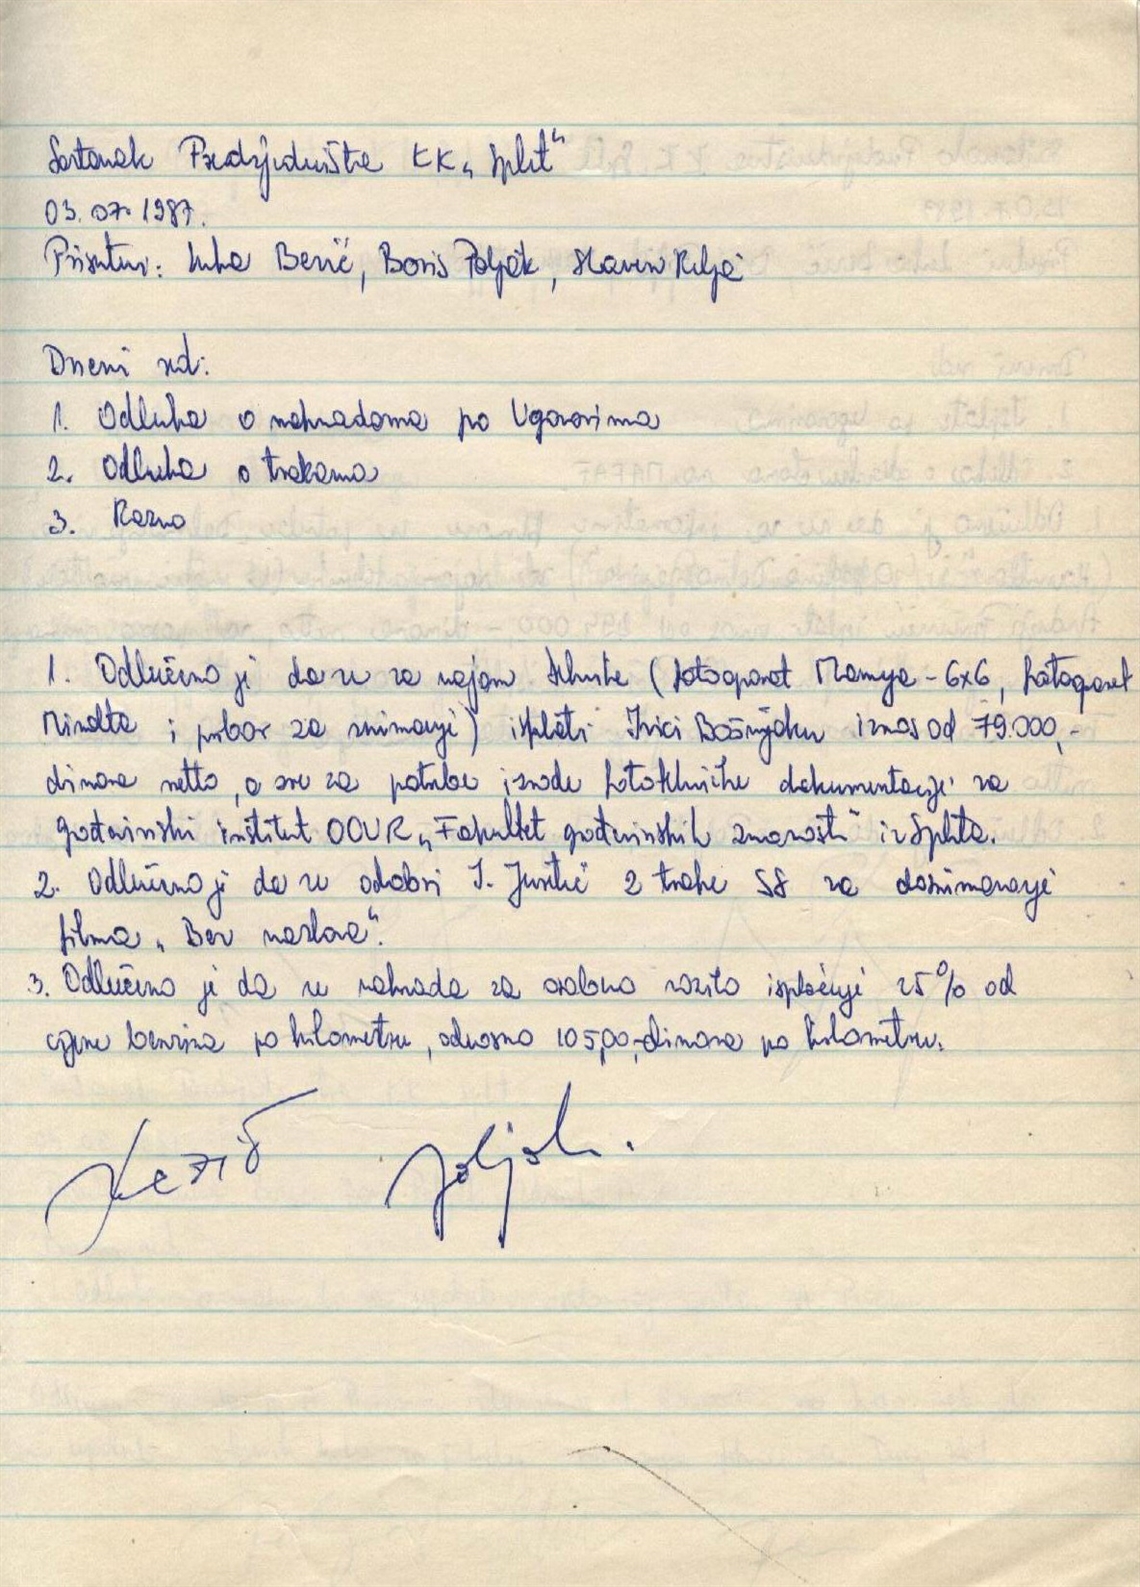 Sastanak Predsjedništva KK „Split“
03.07.1987.
Prisutni: Luka Bezić, Boris Poljak, Slaven Relja
Dnevni red:
1. Odluka o naknadama po Ugovorima
2. Odluka o trakama
3. Razno
1. Odlučeno je da se za najam tehnike (fotoaparat Mamya - 6x6, fotoaparat
Minolta i pribor za snimanje) isplati Ivici Bošnjaku iznos od 79.000,-
dinara netto, a sve za potrebe izrade fototehničke dokumentacije za
građevinski institut OOUR „Fakultet građevinskih znanosti“ iz Splita.
2. Odlučeno je da se odobri I. Justić 2 trake S8 za dosnimavanje
filma „Bez naslova“.
3. Odlučeno je da se naknada za osobno vozilo isplaćuje 25% od
cijene benzina po kilometru, odnosno 105,00,-dinara po kilometru.
Bezić Poljak.